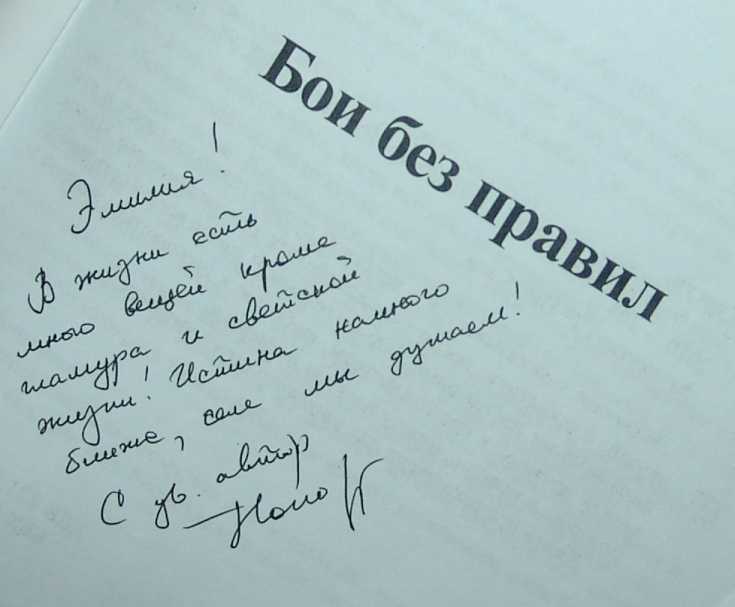 Бои без правил
Эмилия!
В жизни есть
много вещей кроме
гламура и светской
жизни! Истина намного
ближе, чем мы думаем!
С ув. автор